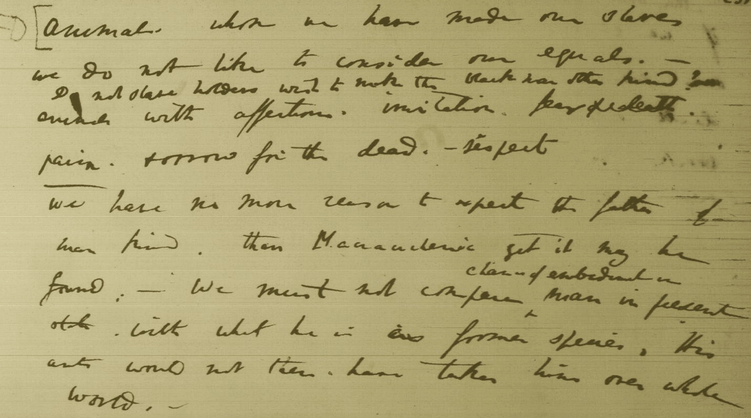 [Animals. whom we have made our slaves
we do not like to consider our equals. —
Do not slave holders wish to make the black man other kind?
animals with affections. imitation. fear of death.
pain. sorrow for the dead. — respect
We have no more reason to expect the father of
man kind. than Macrauchenia yet it may be
found. — We must not compare
chance of embedment in
man in present
state. with what he is as former species. His
arts would not then. have taken him over whole
World. —